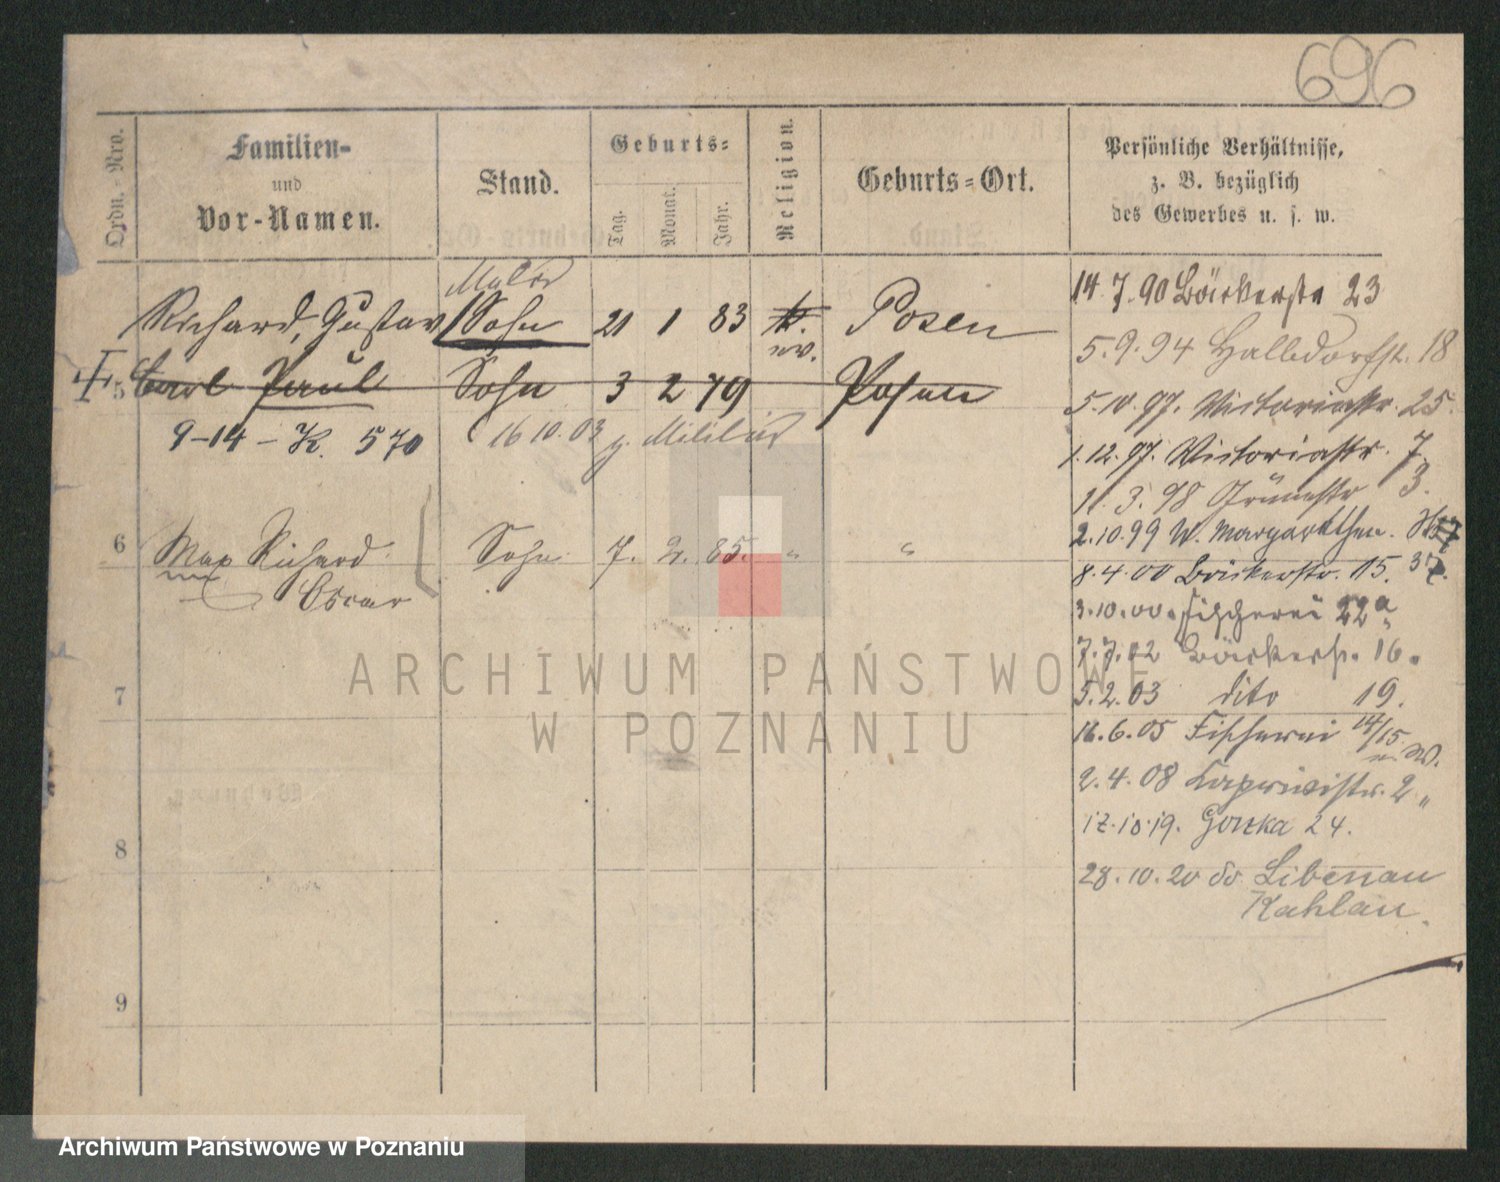 696
Ordn.-Nro.
Familien-
und
Vor-Namen.
Stand.
Geburts-
Tag.
Monat.
Jahr.
Religion.
Geburts-Ort.
Persönliche Verhältnisse,
z. B. bezüglich
des Gewerbes u. s. w.
Maler
Richard, Gustav Sohn 21 1 83 ev. Posen
5 Carl Paul Sohn 3 2 79 Posen
9-14-K. 570 16 10.03 z. Militär
6 Max Richard Sohn 7. 2. 85. " "
Oscar
7
8
9
14.7.90 Bäckerstr 23
5.9.94 Halbdorfstr. 18
5.10.97. Victoriastr. 25.
1.12.97. Victoriastr. 7.
11.3.98 Grünestr 3.
2.10.99 W. Margarethen.
8.4.00 Bäckerstr. 15.
3.10.00. Fischerei 22a
7.7.02 Bäckerstr. 16.
5.2.03 dito 19.
16.6.05 Fischerei 14/15
2.4.08 Caprivistr. 2
12.10.19. Gorzka 24.
28.10.20 do Libenau
Kahlau.
ARCHIWUM PAŃSTWOWE
W POZNANIU
Archiwum Państwowe w Poznaniu